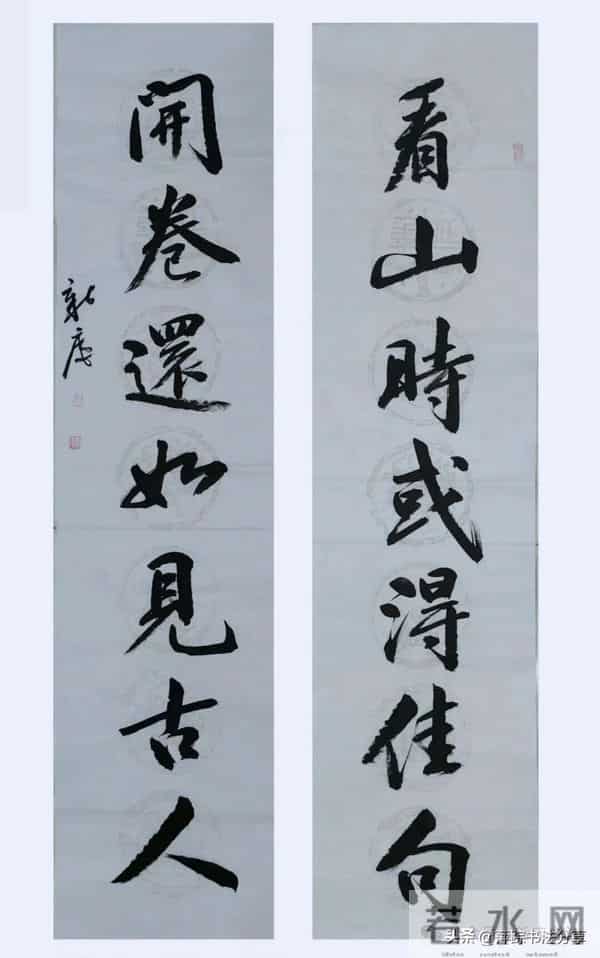 看山時或得佳句
開卷還如見古人
若水网
头条@菩踪书法分享